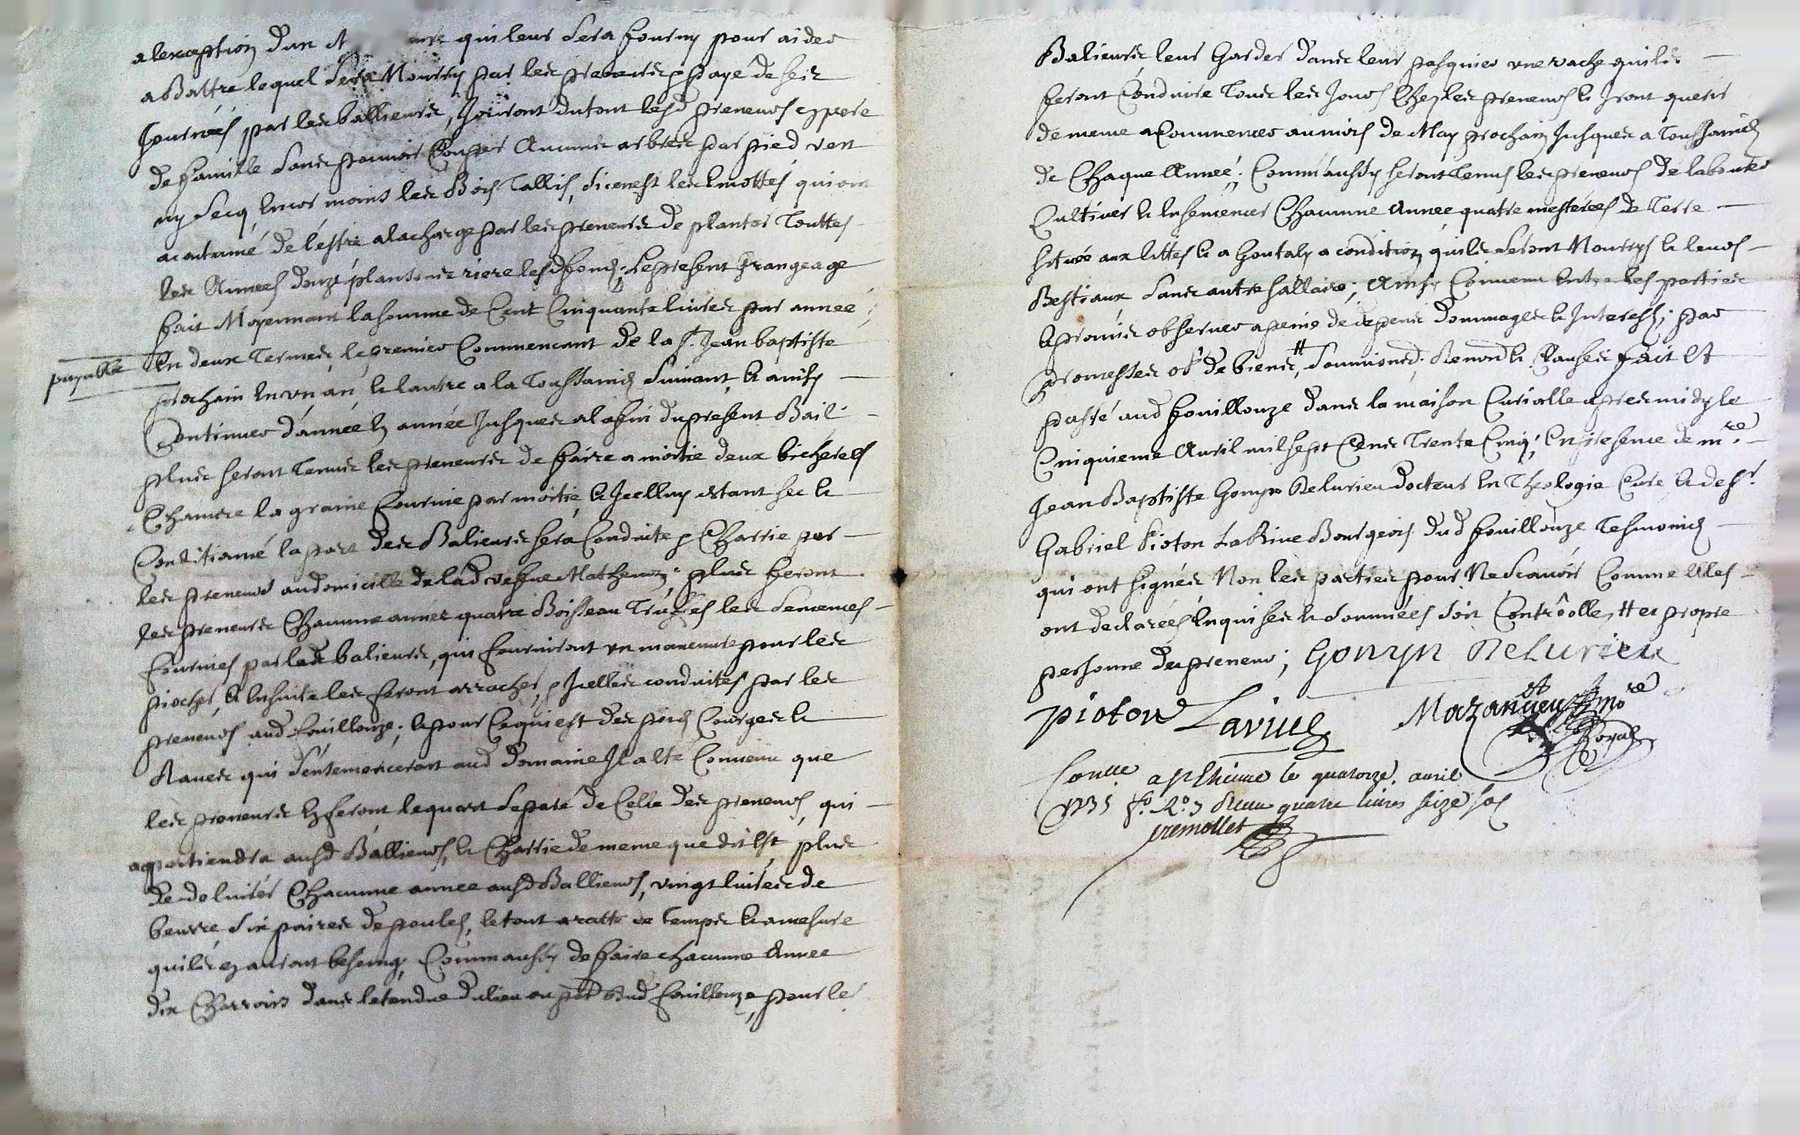 alexception dun et quileur sera fourny pour aider
a Battre lequel sera Nourry par les preneurs & payé de ses
Journées par les ballieurs, Jouiront du tout lesd preneurs en pere
de famille sans pouvoir Couper Aucuns arbres par pied vert
ny secq encor moins les Bois Tallis, si cenest les Emottés qui ont
acoutumé de l'estre alacharge par les preneurs de planter Touttes
les Années douze plantons riere lesd fonds; Lepresent Grangeage
fait Moyennant lasomme de Cent Cinquante livres par année
payable En deux Termes, lepremier Commencant de la St Jean baptiste
prochain en un an, & lautre ala Toussaincts suivant, & ainsy
Continuer d'année en année Jusques alafin dupresent Bail
plus seront Tenus les preneurs de faire amoitié deux bicherées
Chanvre la graine fournie par moitié, & Icelluy estant sec &
Conditionné lapart desd Balieurs sera Conduite & Charrie par
les preneurs audomicille delad vefve Mathevon; plus feront
les preneurs Chacune année quatre Boisseau Truffes les semences
fournies par lesd balieurs, qui fourniront un maneuvre pour les
piocher, & Ensuite les feront arracher, & Icelles conduites par les
preneurs aud fouillouze; & pour Cequi est des pois Courges &
Raves qui s'entemenceront aud Domaine Il a esté Convenu que
les preneurs en feront lequart separé de Celle des preneurs, qui
apartiendra ausd Ballieurs, & Charrie de meme que dit est, plus
de delivrer Chacunne année ausd Ballieurs, vingt livres de
beurre six paires de poules, letout aratte de temps & amesure
quils en auront besoing, Comm'aussy de faire chacunne Année
dix Charrois dans letendue dulieu ou pt dud fouillouze, pour les
Balieurs leur Garder dans leur pasquier une vache quils
feront Conduire Tous les Jours Chez les preneurs & Iront querir
de meme a Commencer aumois de May prochain Jusques a Toussaincts
de Chaque Année; Comm'aussy seront Tenus les preneurs de labourer
Cultiver & Ensemencer Chacunne Année quatre mesterées de Terre
scituée aux littes & a Gontaly a condition quils seront Nourrys & leurs
Bestiaux sans autre sallaire; Ainsy Convenu Entre les parties
& promis observer apeine de depens dommages & Interests; par
promesses obon de biens, # soumissions, Renon & Clauses fait Et
passé aud fouillouze dans la maison Curialle apres midy le
Cinquieme Avril mil sept Cens Trente Cinq; En presence de mre
Jean Baptiste Gonyn Delurieu docteur En Theologie Curé & de sr
Gabriel Pioton LaRive Bourgeois dud fouillouze Tesmoincts
qui ont signés Non les parties pour Nesçavoir Comme Elles
ont declarées Enquises & sommées soit Contrôolle, # et propre
personne des preneurs; Gonyn Delurieu
pioton Larive Mazancieux Nore Royal
Conllé a st Etienne le quatorze avril
1735 fo. Ro. 3 Reçu quatre livres seize sols
premollet